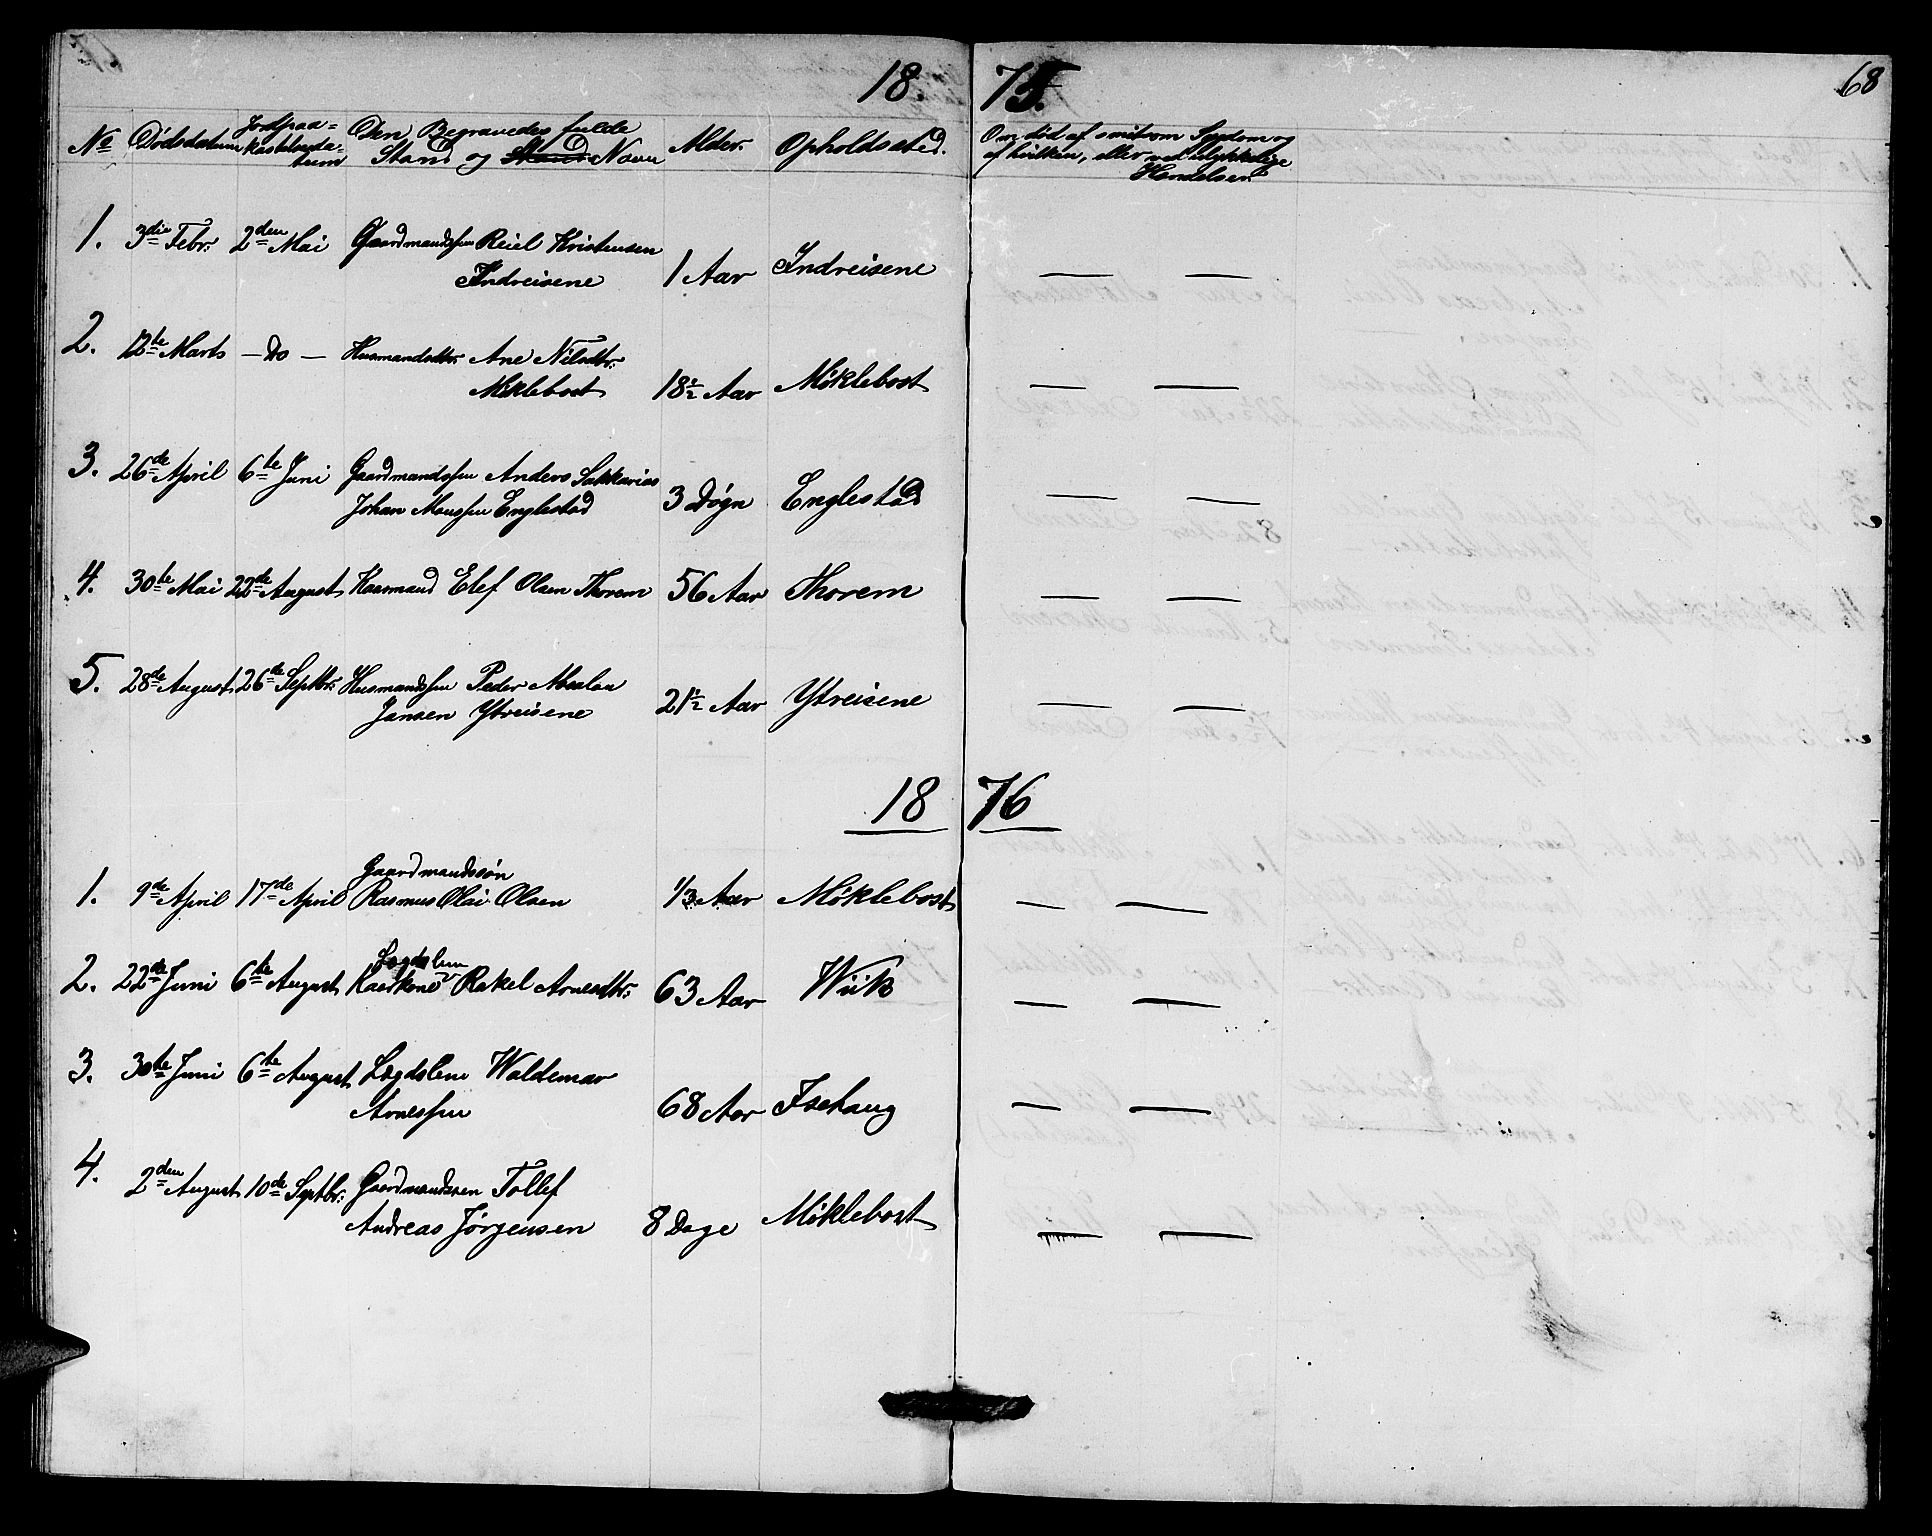 18 75. 68
No Dødsdatum Jordpaa= Den Begravedes fulde Alder. Opholdssted. Om død af smitsom Sygdom og
kastelseda= Stand og Stand Navn af hvilken, eller ved ulykkelige
tum Hændelser.
1. 3die Febr: 2den Mai Gaardmandssøn Reiel Kristensen
Indreisene 1 Aar Indreisene — —
2. 12te Marts — Do — Husmandsdtr. Ane Nilsdtr:
Møklebost 18½ Aar Møklebost — —
3. 26de April 6te Juni Gaardmandssøn Anders Sakkarias
Johan Monssen Englestad 3 Døgn Englestad — —
4. 30te Mai 22de August Kaarmand Elef Olsen Thorem 56 Aar Thorem — —
5. 28de August 26de Septbr: Husmandssøn Peder
Jansen Ytreisene 21½ Aar Ytreisene — —
18 76
Gaardmandssøn
1. 9de April 17de April Rasmus Olai Olsen 1/3 Aar Møklebost — —
Lægdslem
2. 22de Juni 6te August Kaarkone Rakel Arnesdtr: 63 Aar Wiik — —
3. 30te Juni 6te August Lægdslem Waldemar
Arnessen 68 Aar — —
4. 2den August 10de Septbr: Gaardmandssøn Tollef
Andreas Jørgensen 8 Dage Møklebost — —